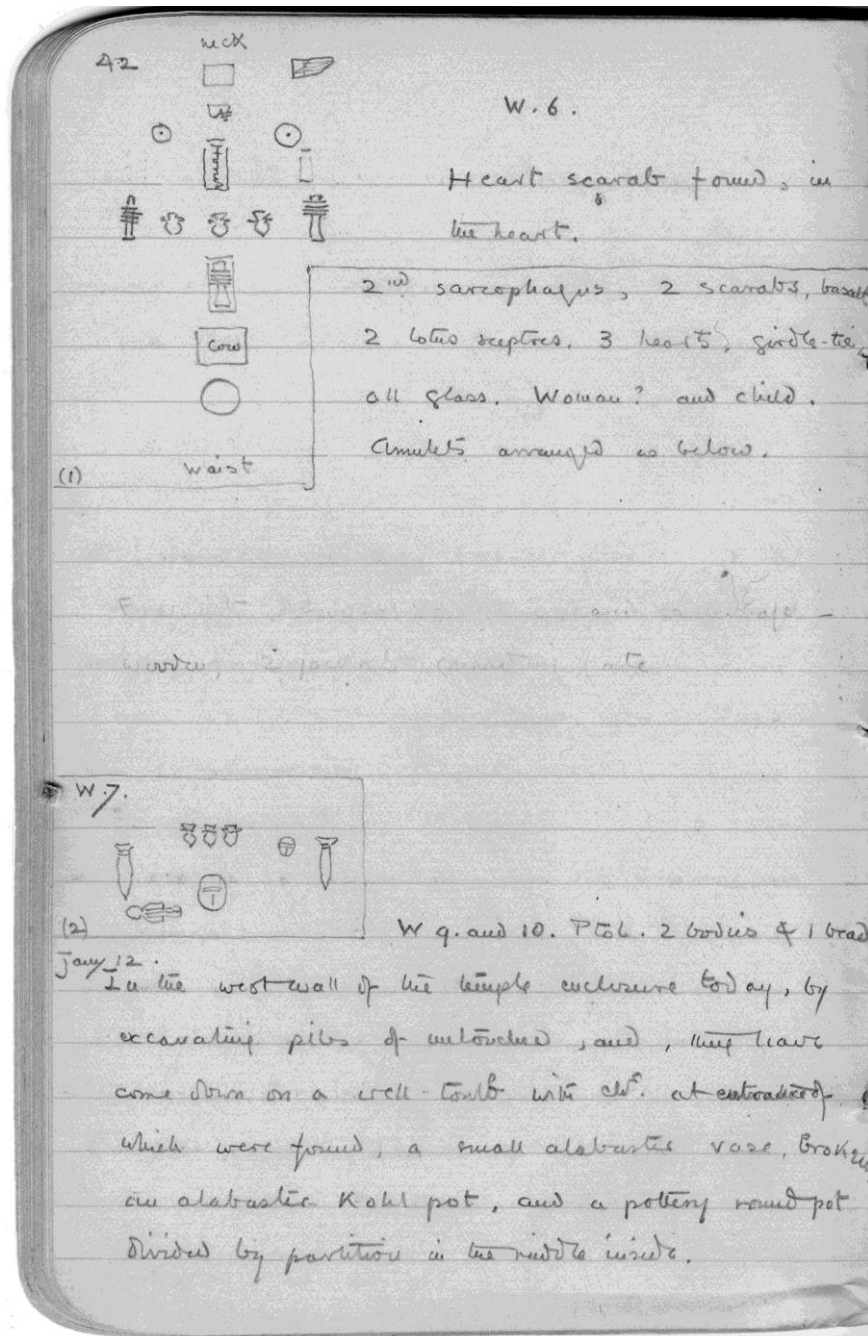 42
neck
W. 6.
Heart scarab found, in
the heart.
2nd sarcophagus, 2 scarabs, basalt
2 lotus sceptres. 3 hearts, girdle-tie,
all glass. Woman? and child.
Amulets arranged as below.
Horus
Cow
waist
(1)
W. 7.
(2)
W 9. and 10. Ptol. 2 bodies & 1 bead
Jany 12.
In the west wall of the temple enclosure today, by
excavating piles of untouched sand, they have
come down on a well-tomb with at entrance of
which were found, a small alabaster vase, broken
an alabaster Kohl pot, and a pottery round pot
divided by partition in the middle inside.